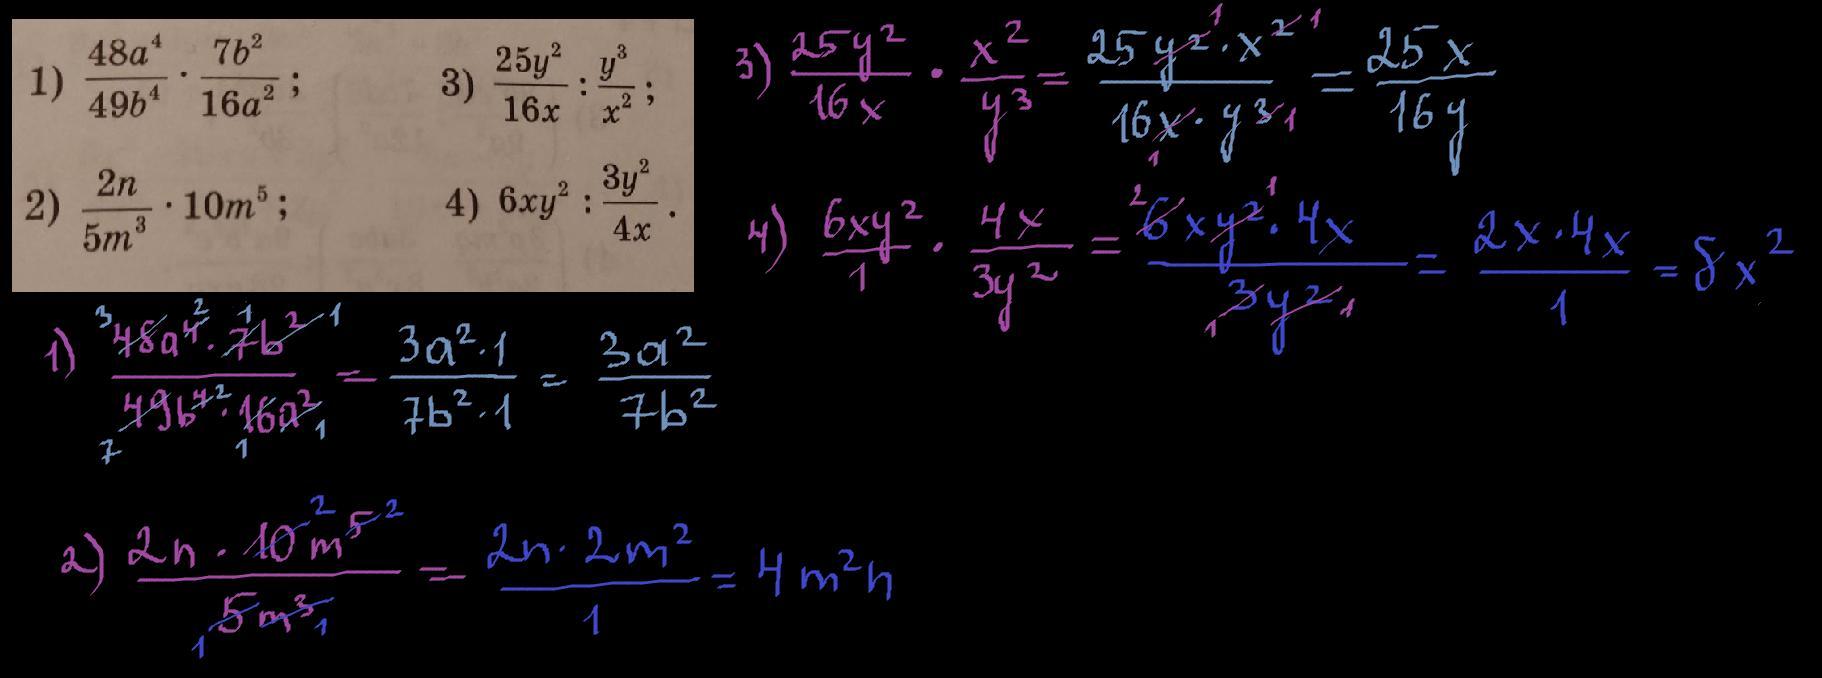 1) \frac{48a^4}{49b^4} \cdot \frac{7b^2}{16a^2};
2) \frac{2n}{5m^3} \cdot 10m^5;
3) \frac{25y^2}{16x} : \frac{y^3}{x^2};
4) 6xy^2 : \frac{3y^2}{4x}.
1) \frac{48a^4 \cdot 7b^2}{49b^4 \cdot 16a^2} = \frac{3a^2 \cdot 1}{7b^2 \cdot 1} = \frac{3a^2}{7b^2}
2) \frac{2n \cdot 10m^5}{5m^3} = \frac{2n \cdot 2m^2}{1} = 4m^2n
3) \frac{25y^2}{16x} \cdot \frac{x^2}{y^3} = \frac{25y^2 \cdot x^2}{16x \cdot y^3} = \frac{25x}{16y}
4) \frac{6xy^2}{1} \cdot \frac{4x}{3y^2} = \frac{6xy^2 \cdot 4x}{3y^2} = \frac{2x \cdot 4x}{1} = 8x^2